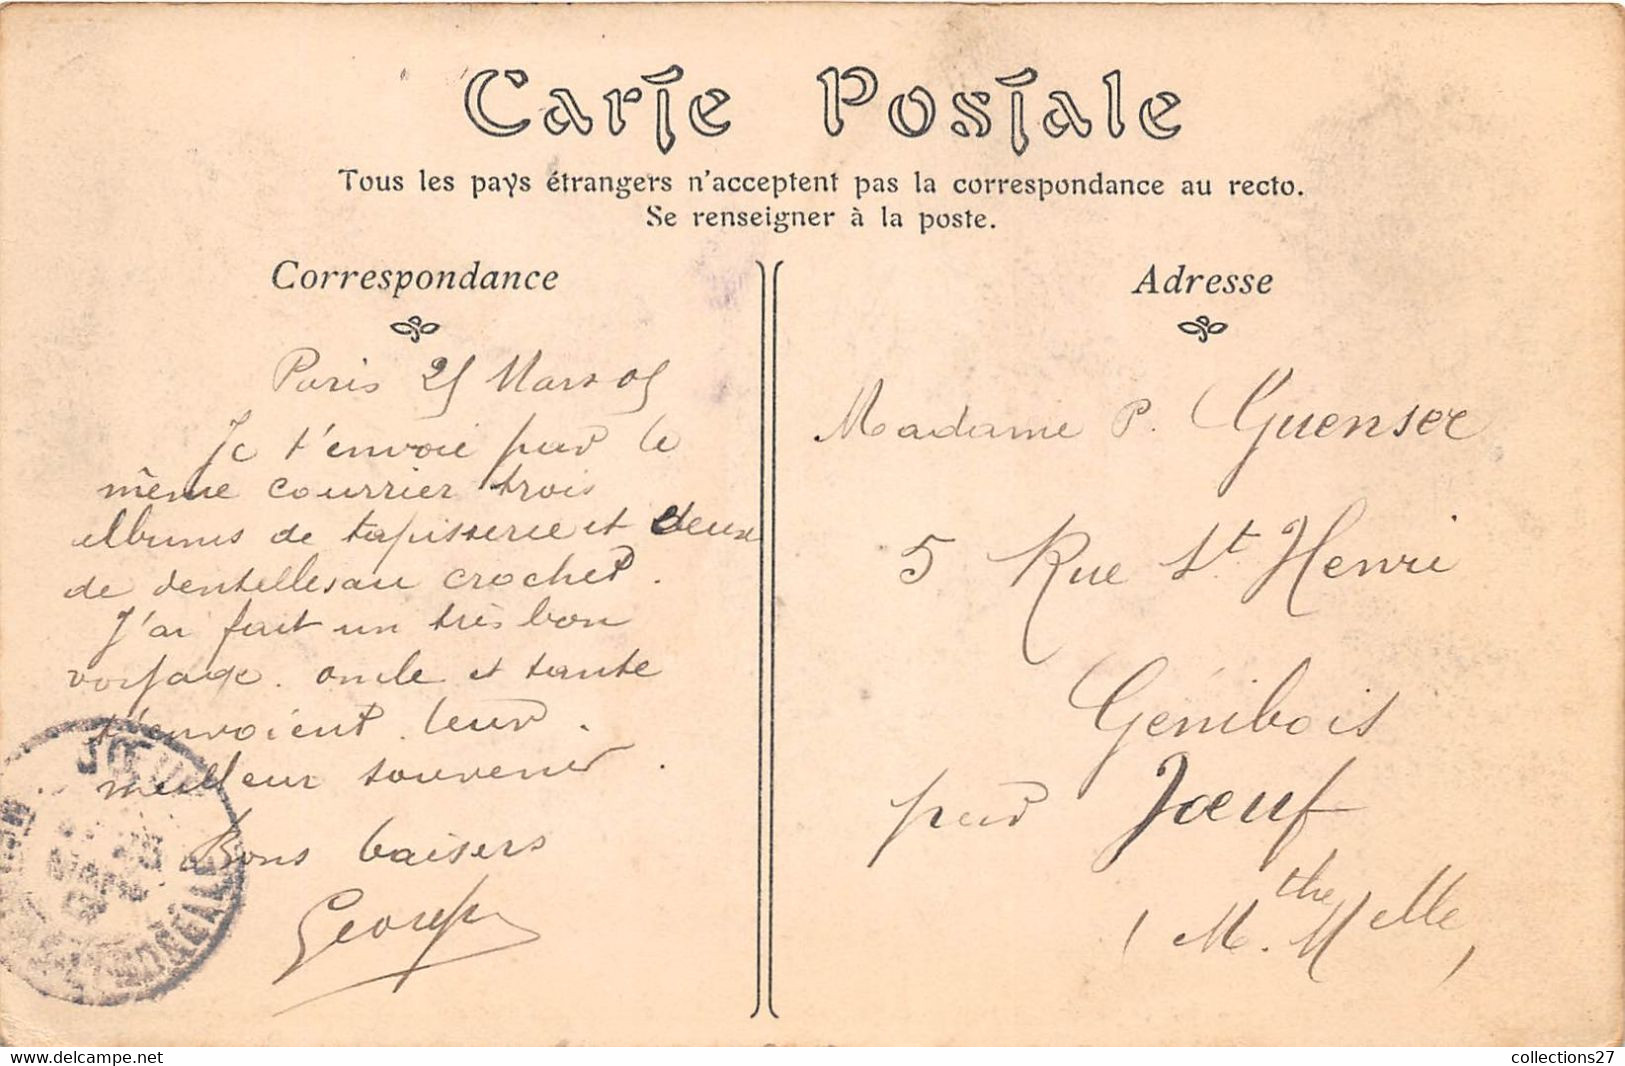 Carte Postale
Tous les pays étrangers n'acceptent pas la correspondance au recto.
Se renseigner à la poste.
Correspondance
Paris 25 Mars 05
Je t'envoie par le
même courrier trois
albums de tapisserie et deux
de dentelles au crochet.
J'ai fait un très bon
voyage. oncle et tante
t'envoient leur
meilleur souvenir.
Bons baisers
Georges
Adresse
Madame P. Guenser
5 Rue St. Henri
Génibois
par Jœuf
(Mthe Mlle)
JŒUF
MOSELLE
delcampe.net
collections27